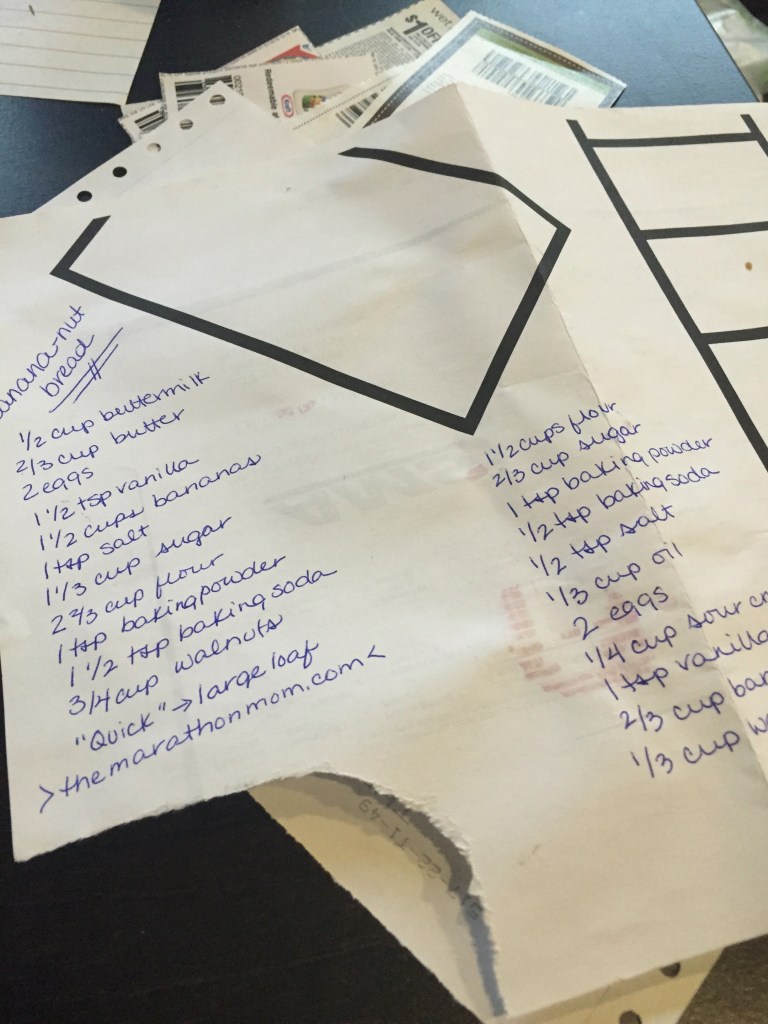 $1 OFF
banana-nut
bread
1/2 cup buttermilk
2/3 cup butter
2 eggs
1 1/2 tsp vanilla
1 1/2 cups bananas
1 tsp salt
1 1/3 cup sugar
2 2/3 cup flour
1 tsp baking powder
1 1/2 tsp baking soda
3/4 cup walnuts
"Quick" → large loaf
> themarathonmom.com <
1 1/2 cups flour
2/3 cup sugar
1 tsp baking powder
1/2 tsp baking soda
1/2 tsp salt
1/3 cup oil
2 eggs
1/4 cup sour cr
1 tsp vanilla
2/3 cup ban
1/3 cup w